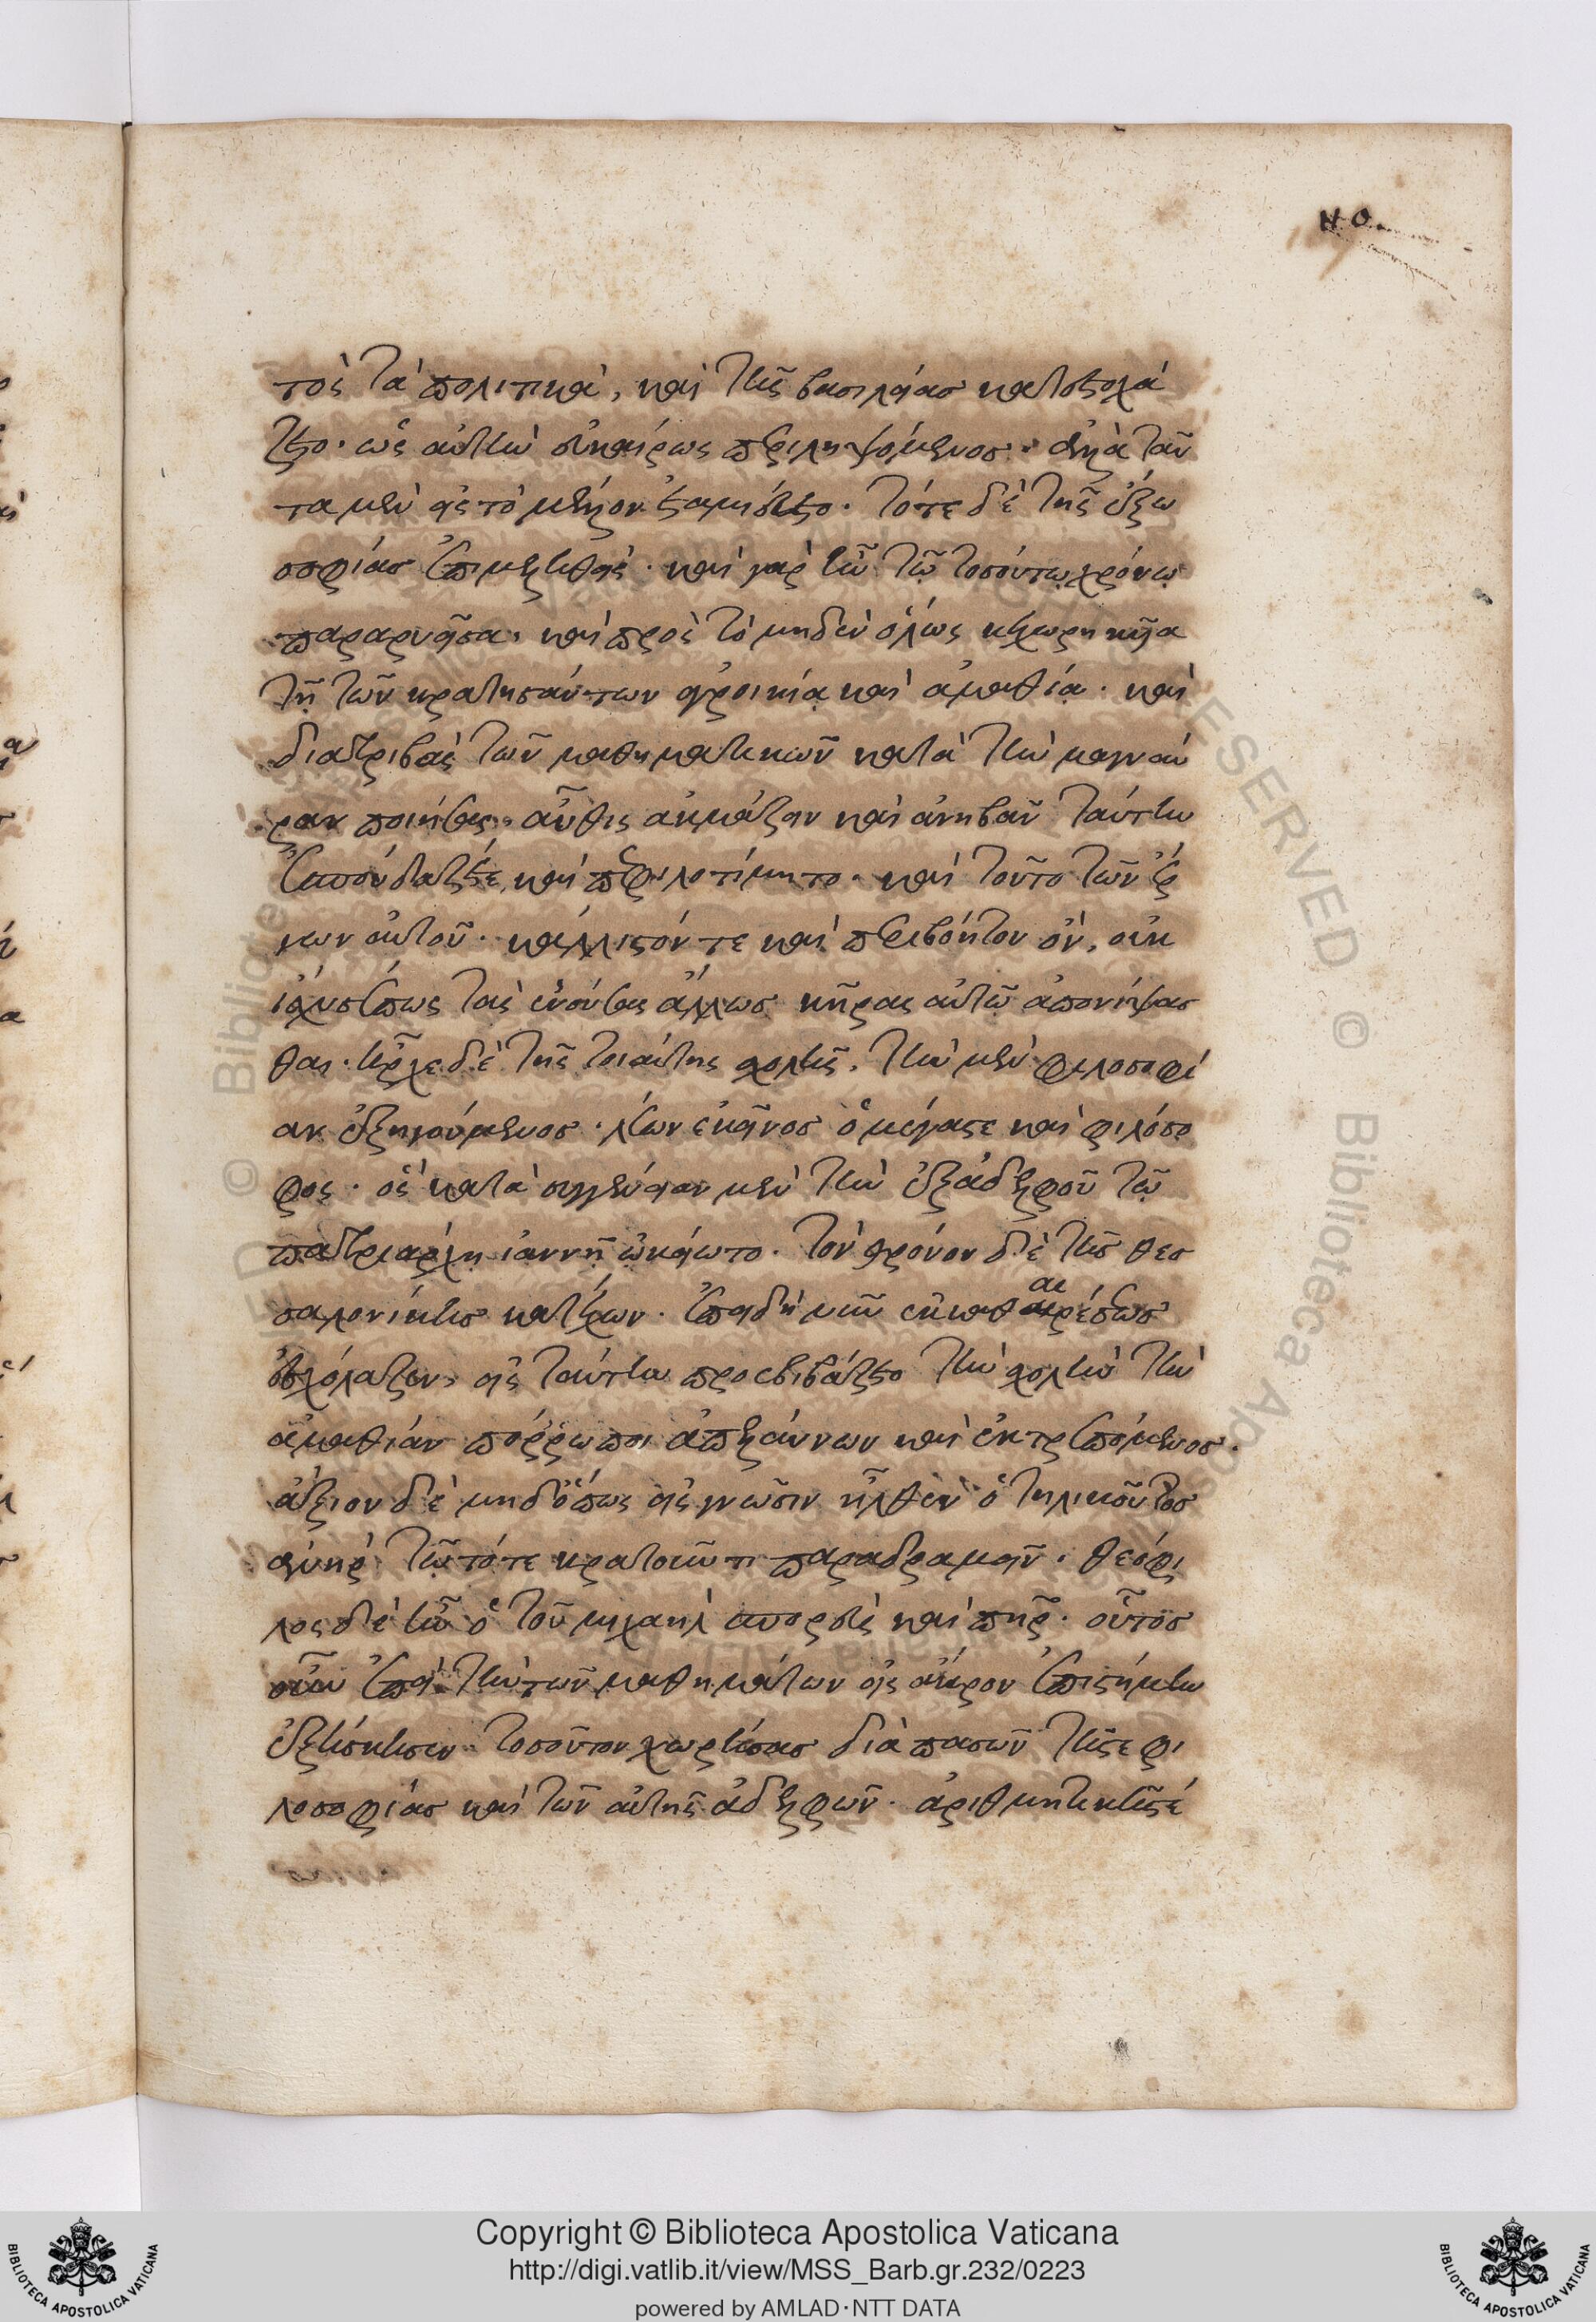 Η Ο.
τὸς τὰ πολιτικὰ, καὶ τῆς βασιλείας κατεστοχά
ζετο. ὡς αὐτὴν εὐκαίρως περιληψόμενος. ἀλλὰ ταῦ
τα μὲν εἰς τὸ μέλλον ἐταμιεύετο. τότε δὲ τῆς ἔξω
σοφίας ἐπιμεληθεὶς. καὶ γὰρ ἦν τῷ τοσούτῳ χρόνῳ
παραρυεῖσα, καὶ πρὸς τὸ μηδὲν ὅλως κεχωρηκυῖα
τῇ τῶν κρατησάντων ἀγροικίᾳ καὶ ἀμαθίᾳ. καὶ
διατριβὰς τῶν μαθηματικῶν κατὰ τὴν μαγναύ
ραν ποιήσας, αὖθις ἀκμάζειν καὶ ἀνηβᾶν ταύτην
ἐσπούδαζέ τε, καὶ πεφιλοτίμητο. καὶ τοῦτο τῶν ἔρ
γων αὐτοῦ. κάλλιστόν τε καὶ περιβόητον ὂν, οὐκ
ἴσχυσέ πως τὰς ἐνούσας ἄλλως κῆρας αὐτῷ ἀπονίψασ
θαι. ἦρχε δὲ τῆς τοιαύτης σχολῆς, τὴν μὲν φιλοσοφί
αν ἐξηγούμενος. λέων ἐκεῖνος ὁ μέγας τε καὶ φιλόσο
φος. ὃς κατὰ συγγένειαν μὲν τὴν ἐξαδέλφου τῷ
πατριάρχῃ ἰαννῇ ᾠκείωτο. τὸν θρόνον δὲ τῆς θεσ
σαλονίκης κατέχων. ἐπειδὴ νῦν ἐκ καθαιρέσεως
αι
ἐσχόλαζεν, εἰς ταύτην προεβιβάζετο τὴν σχολὴν τὴν
ἀμαθίαν πόρρω ποι ἀπελαύνων καὶ ἐκτρεπόμενος.
ἄξιον δὲ μηδ' ὅπως εἰς γνῶσιν ἦλθεν ὁ τηλικοῦτος
ἀνὴρ τῷ τότε κρατοῦντι παραδραμεῖν. θεόφι
λος δὲ ἦν ὁ τοῦ μιχαὴλ σπορεὺς καὶ πηρ. οὗτος
οὖν ἐπεὶ τὴν τῶν μαθημάτων εἰς ἄκρον ἐπιστήμην
ἐξήσκησεν. τοσοῦτον χωρήσας διὰ πασῶν τῆς τε φι
λοσοφίας καὶ τῶν αὐτῆς ἀδελφῶν. ἀριθμητικῆς τέ